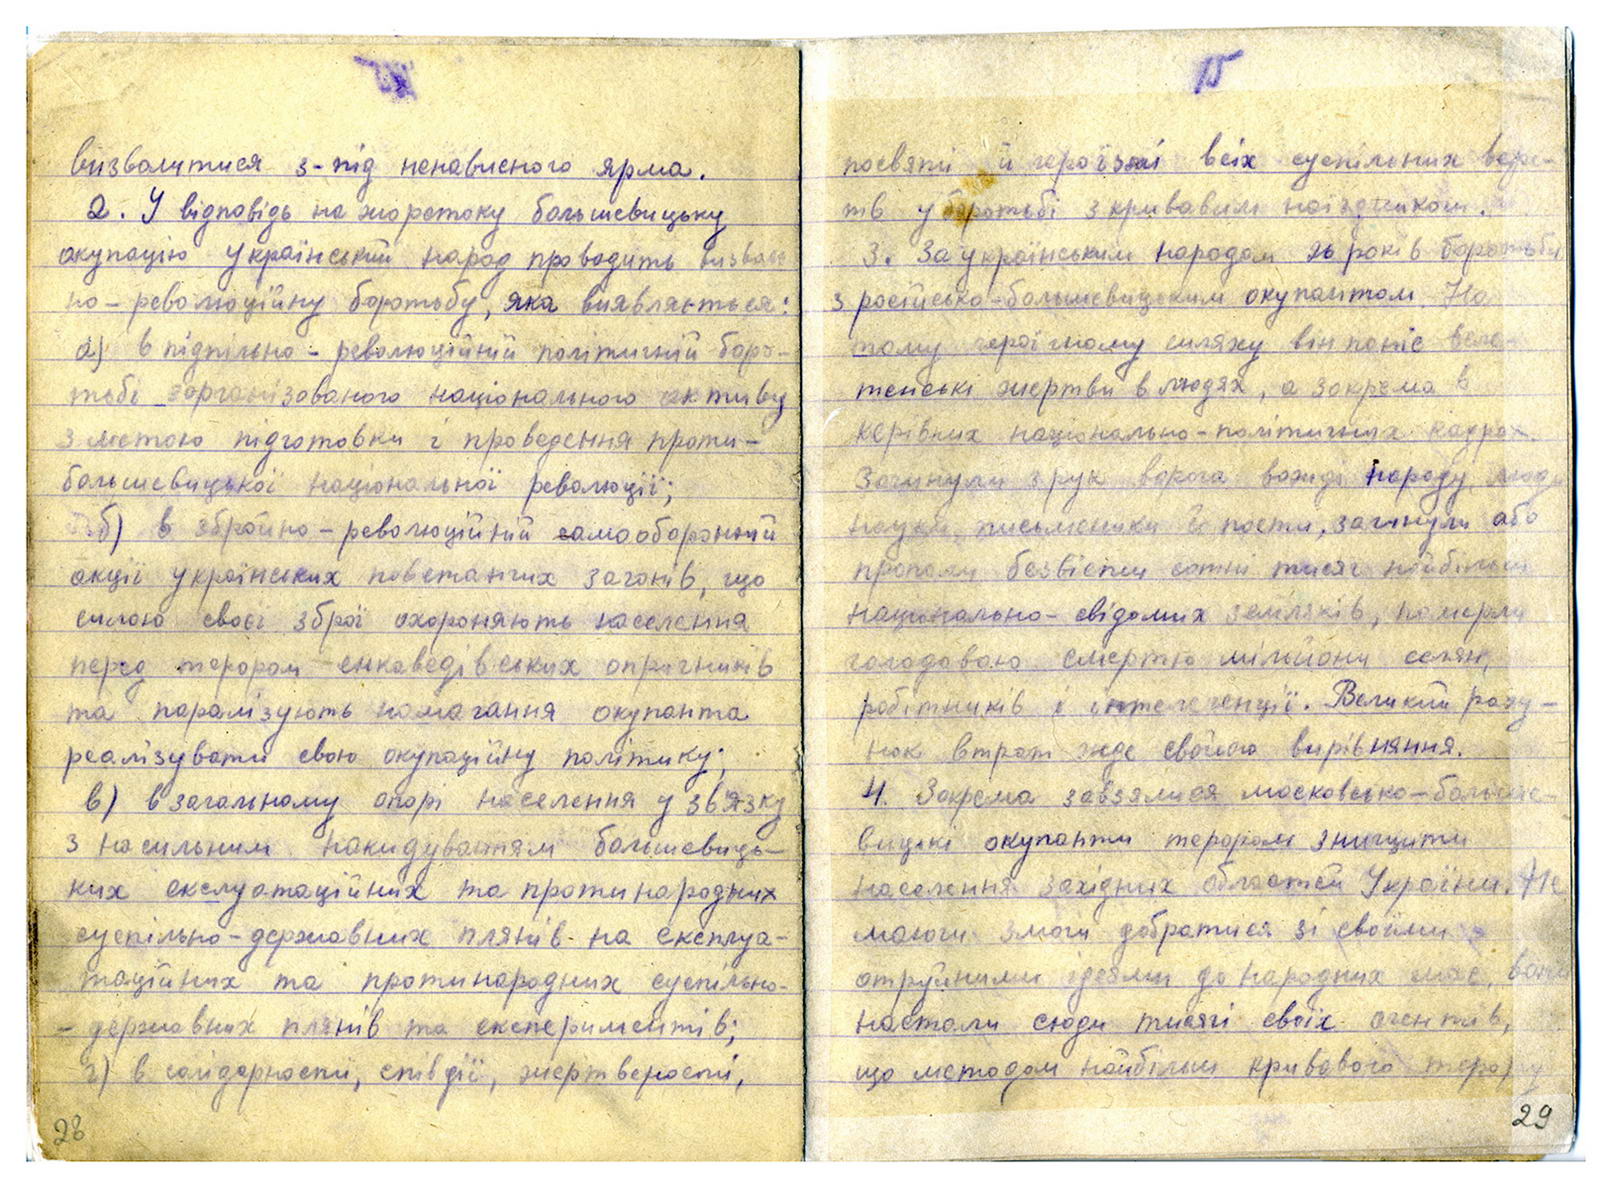 визволитися з-під ненависного ярма.
2. У відповідь на жорстоку большевицьку
окупацію український народ проводить визволь
но-революційну боротьбу, яка виявляється:
а) в підпільно-революційній політичній боро-
тьбі зорганізованого національного активу
з метою підготовки і проведення проти-
большевицької національної революції;
б) в збройно-революційній самообороній
акції українських повстанчих загонів, що
силою своєї зброї охороняють населення
перед терором енкаведівських опричників
та паралізують намагання окупанта
реалізувати свою окупаційну політику;
в) в загальному опорі населення у звязку
з насильним накидуванням большевиць-
ких екслуатаційних та протинародних
суспільно-державних плянів на експлуа-
таційних та протинародних суспільно-
-державних плянів та експериментів;
г) в солідарности, співдії, жертвености,
28
15
посвяті й героїзмі всіх суспільних верс-
тв у боротьбі з кривавим наїздником.
3. За українським народом 26 років боротьби
з російсько-большевицьким окупантом. На
тому героїчному шляху він поніс веле-
тенські жертви в людях, а зокрема в
керівних національно-політичних кадрах.
Загинули з рук ворога вожді народу, люди
науки, письменники й поети, загинули або
пропали безвісти сотні тисяч найбільш
національно-свідомих земляків, померли
голодовою смертю мільйони селян,
робітників і інтелегенції. Великий раху-
нок втрат жде свойого вирівняння.
4. Зокрема завзялися московсько-больше-
вицькі окупанти терором знищити
населення західних областей України. Не
маючи змоги добратися зі своїми
отруйними ідеями до народних мас, вони
наслали сюди тисячі своїх агентів,
що методом найбільш кривавого терору
29